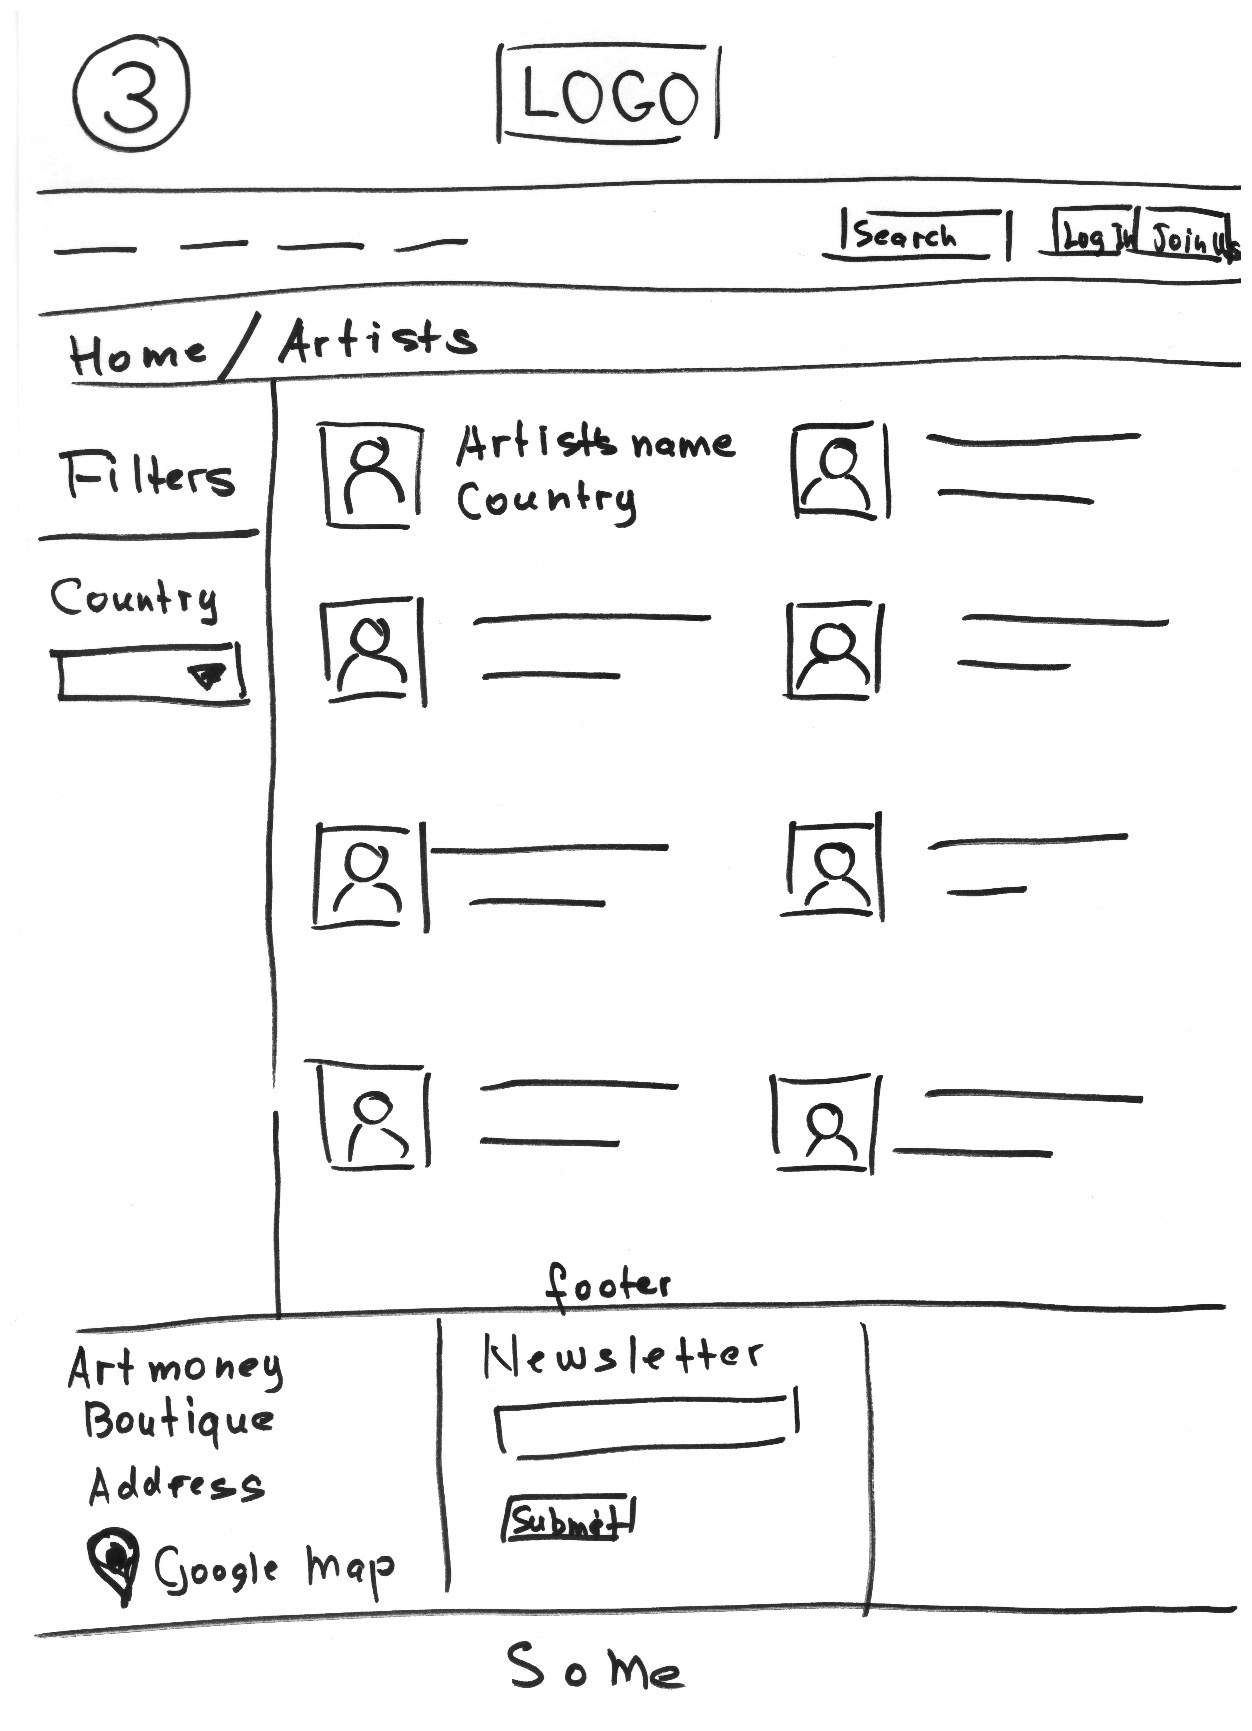 3
LOGO
Search Log In Join Us
Home / Artists
Filters
Artists name
Country
Country
footer
Art money
Boutique
Address
Google Map
Newsletter
Submit
SoMe